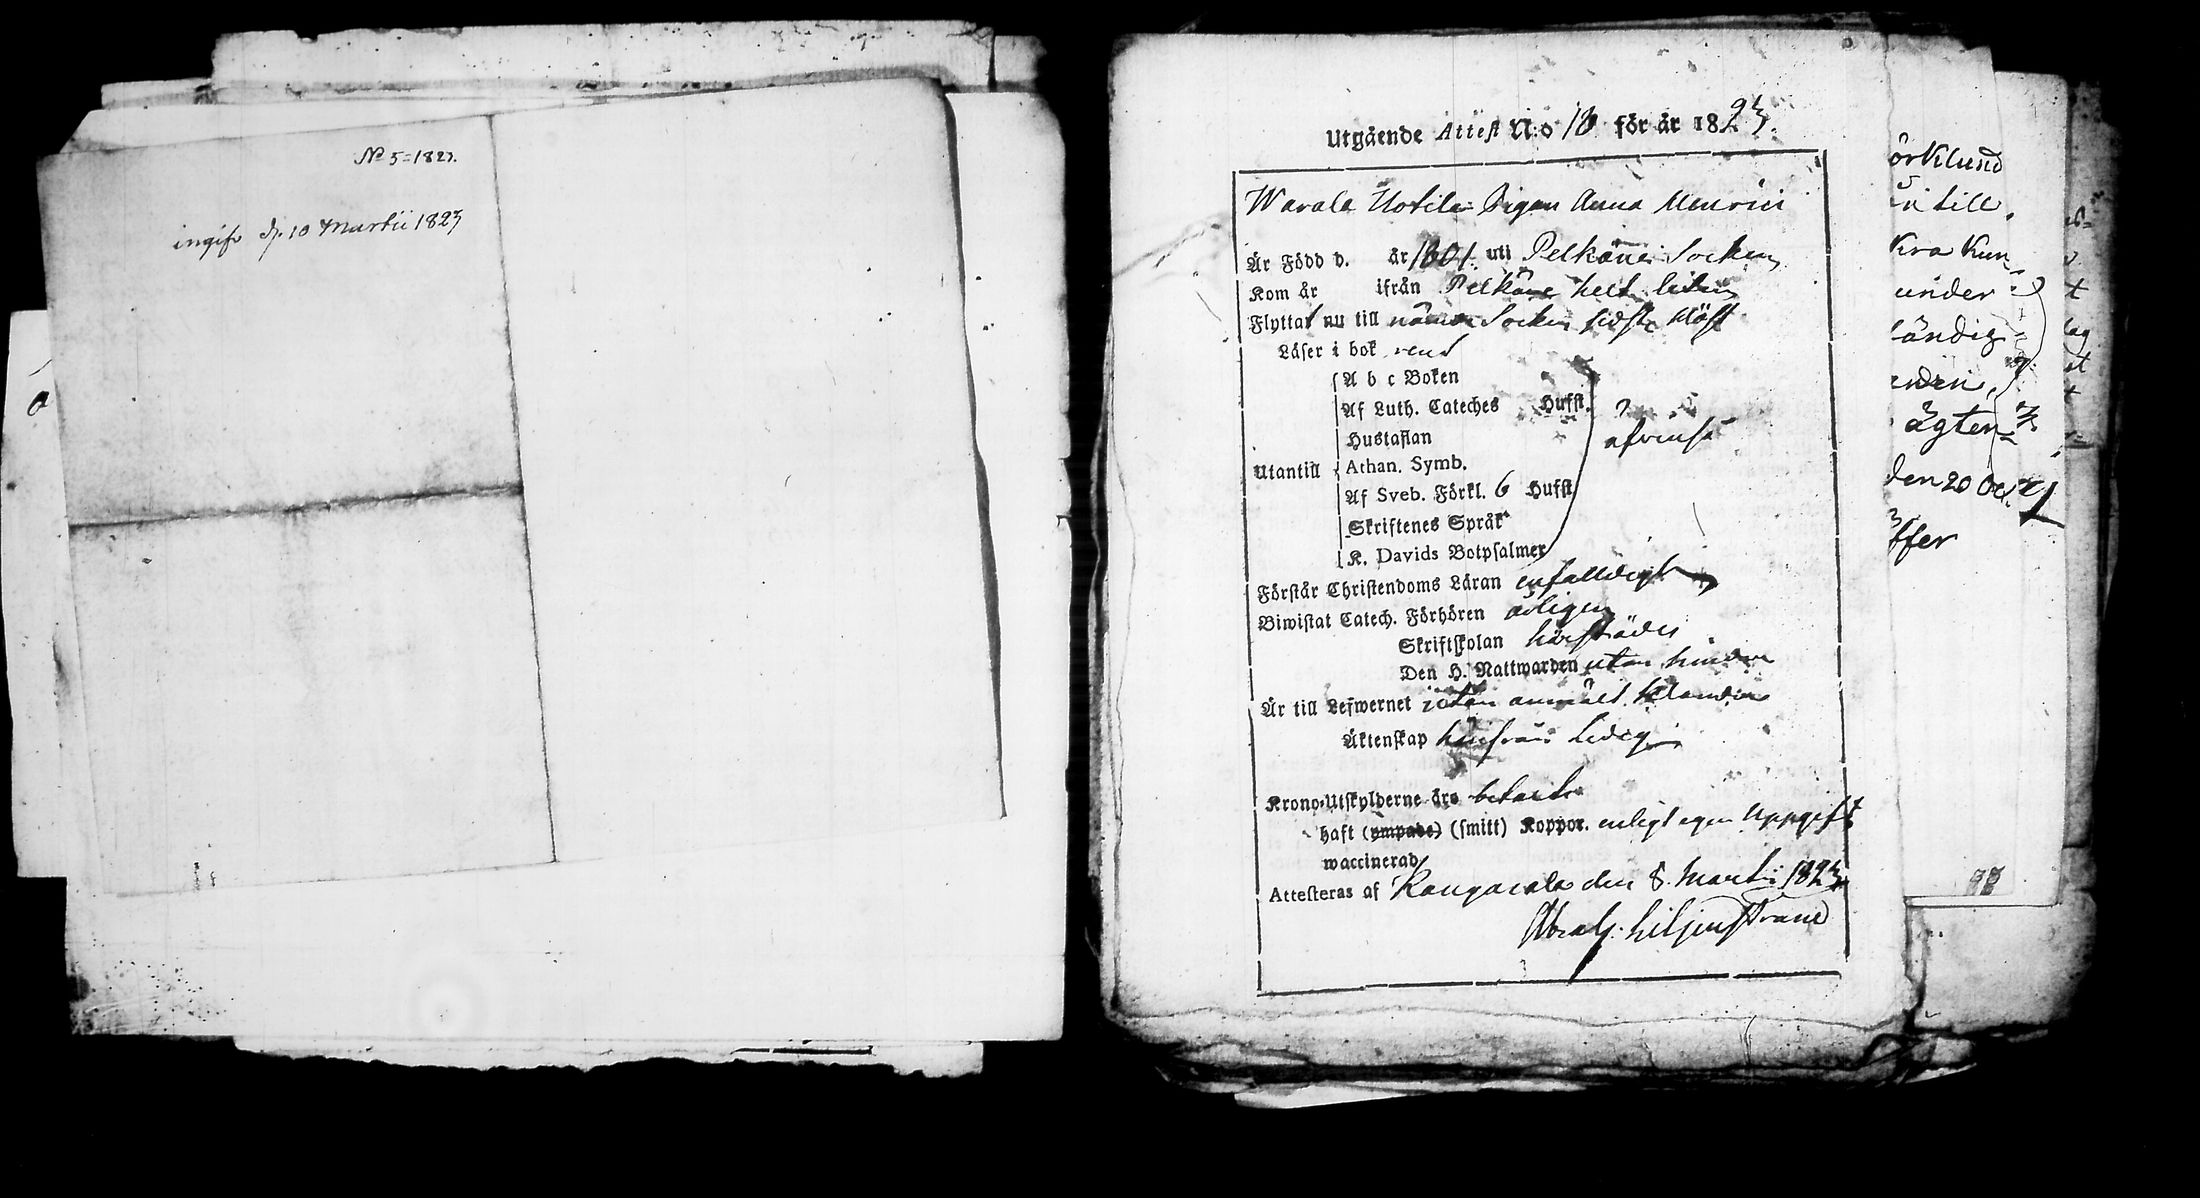 No 5=1823.
ingifv d. 10 Martii 1823
Utgående Attest N:o 18 för år 1823.
Warala Uotila Pigan Anna Henrici
Är Född d. år 1801. uti Pelkäne Socken
Kom år ifrån Pelkäne helt liten
Flyttar nu till nämde Socken sidste höst
Läser i bok rent
A b c Boken
Af Luth. Cateches Hufst.
Hustaflan
Utantill
Athan. Symb.
Af Sveb. Förkl. 6 Hufst.
Skriftenes Språk
K. Davids Botpsalmer
Förstår Christendoms Läran enfalldigt
Biwistat Catech. Förhören årligen
Skriftskolan härstädes
Den H. Nattwarden utan hinder
Är till Lefwernet utan anmält klander
Äktenskap härifrån ledig
Krono-Utskylderne äro betalte
haft (ympade) (smitt) Koppor. enligt egen Uppgift
waccinerad
Attesteras af Kangasala den 8. Martii 1823
Abrah. Liljenstrand
örklund
till.
kra kun-
under
ändig
ägten-
den 20 Oct.
98